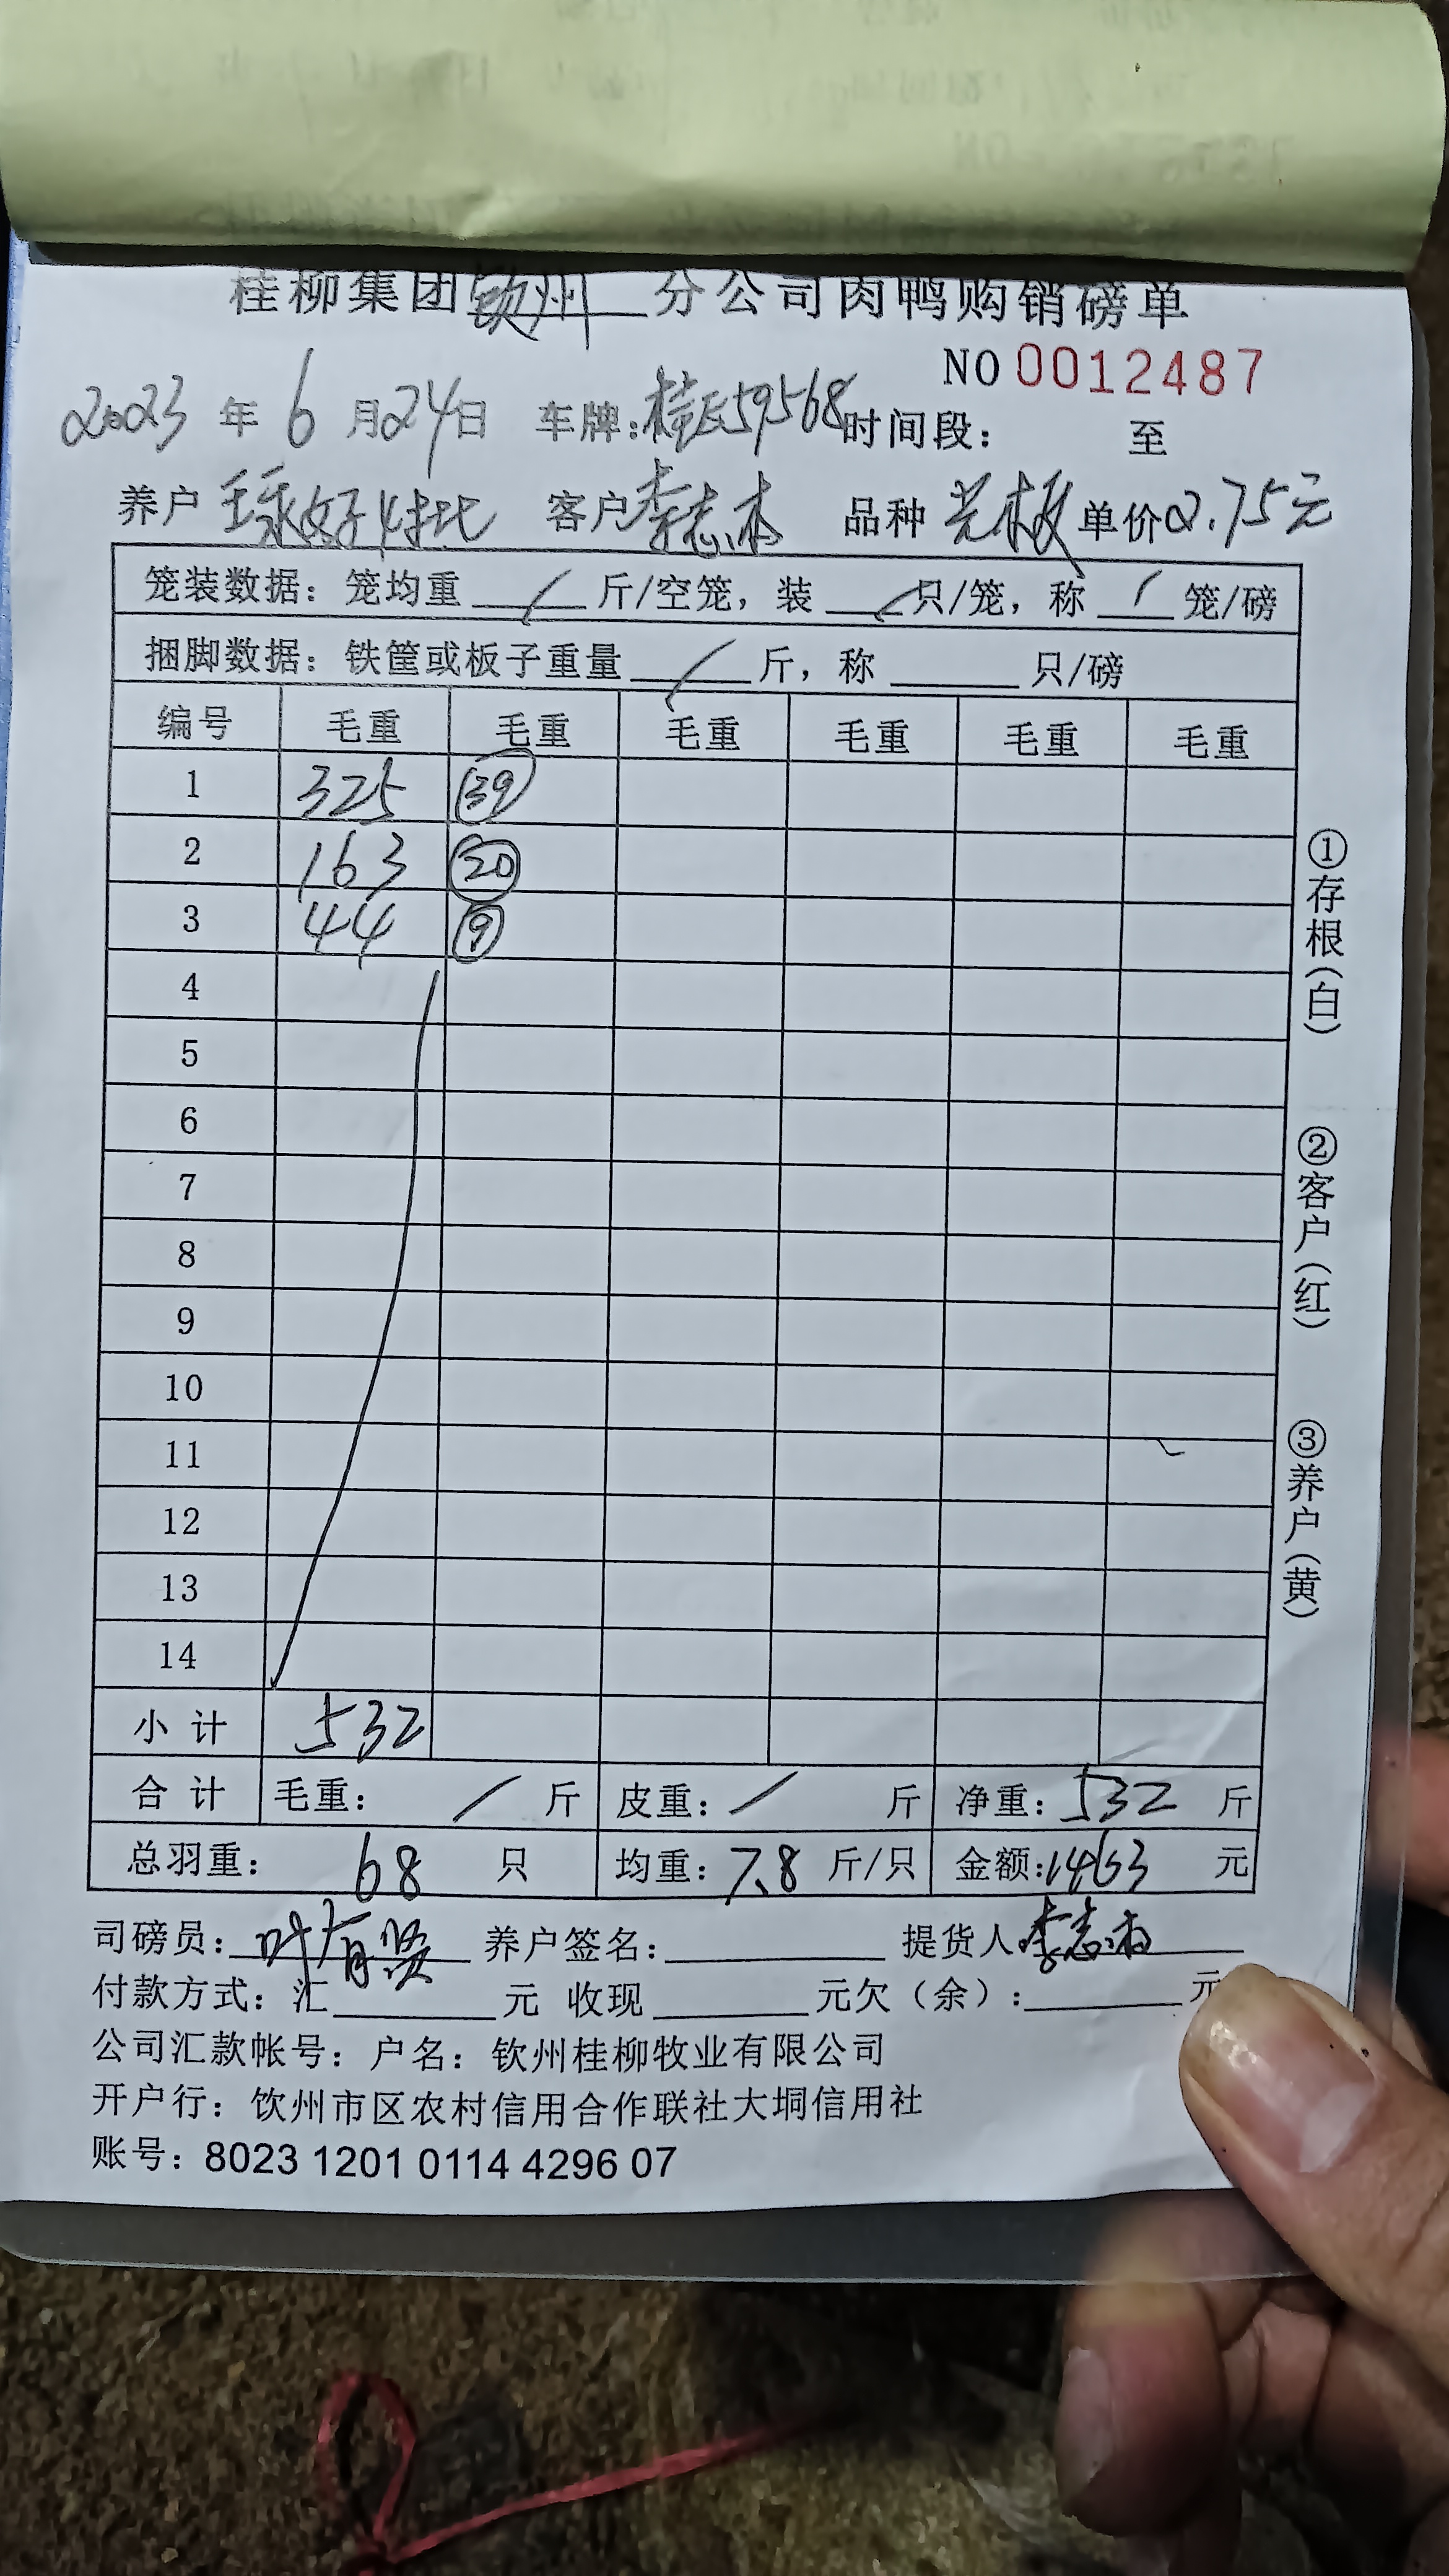 桂柳集团钦州分公司肉鸭购销磅单
NO 0012487
2023年6月24日 车牌:桂 59568 时间段: 至
养户 王永好 客户 李志 品种 光板 单价 2.75元
笼装数据: 笼均重 / 斤/空笼, 装 / 只/笼, 称 / 笼/磅
捆脚数据: 铁筐或板子重量 / 斤, 称 只/磅
编号 毛重 毛重 毛重 毛重 毛重 毛重
1 325 39
2 163 20
3 44 9
4
5
6
7
8
9
10
11
12
13
14
小计 532
合计 毛重: / 斤 皮重: / 斤 净重: 532 斤
总羽重: 68 只 均重: 7.8 斤/只 金额: 1463 元
司磅员: 叶有贤 养户签名: 提货人 李志
付款方式: 汇 元 收现 元欠(余): 元
公司汇款帐号: 户名: 钦州桂柳牧业有限公司
开户行: 饮州市区农村信用合作联社大垌信用社
账号: 8023 1201 0114 4296 07
①存根(白)
②客户(红)
③养户(黄)